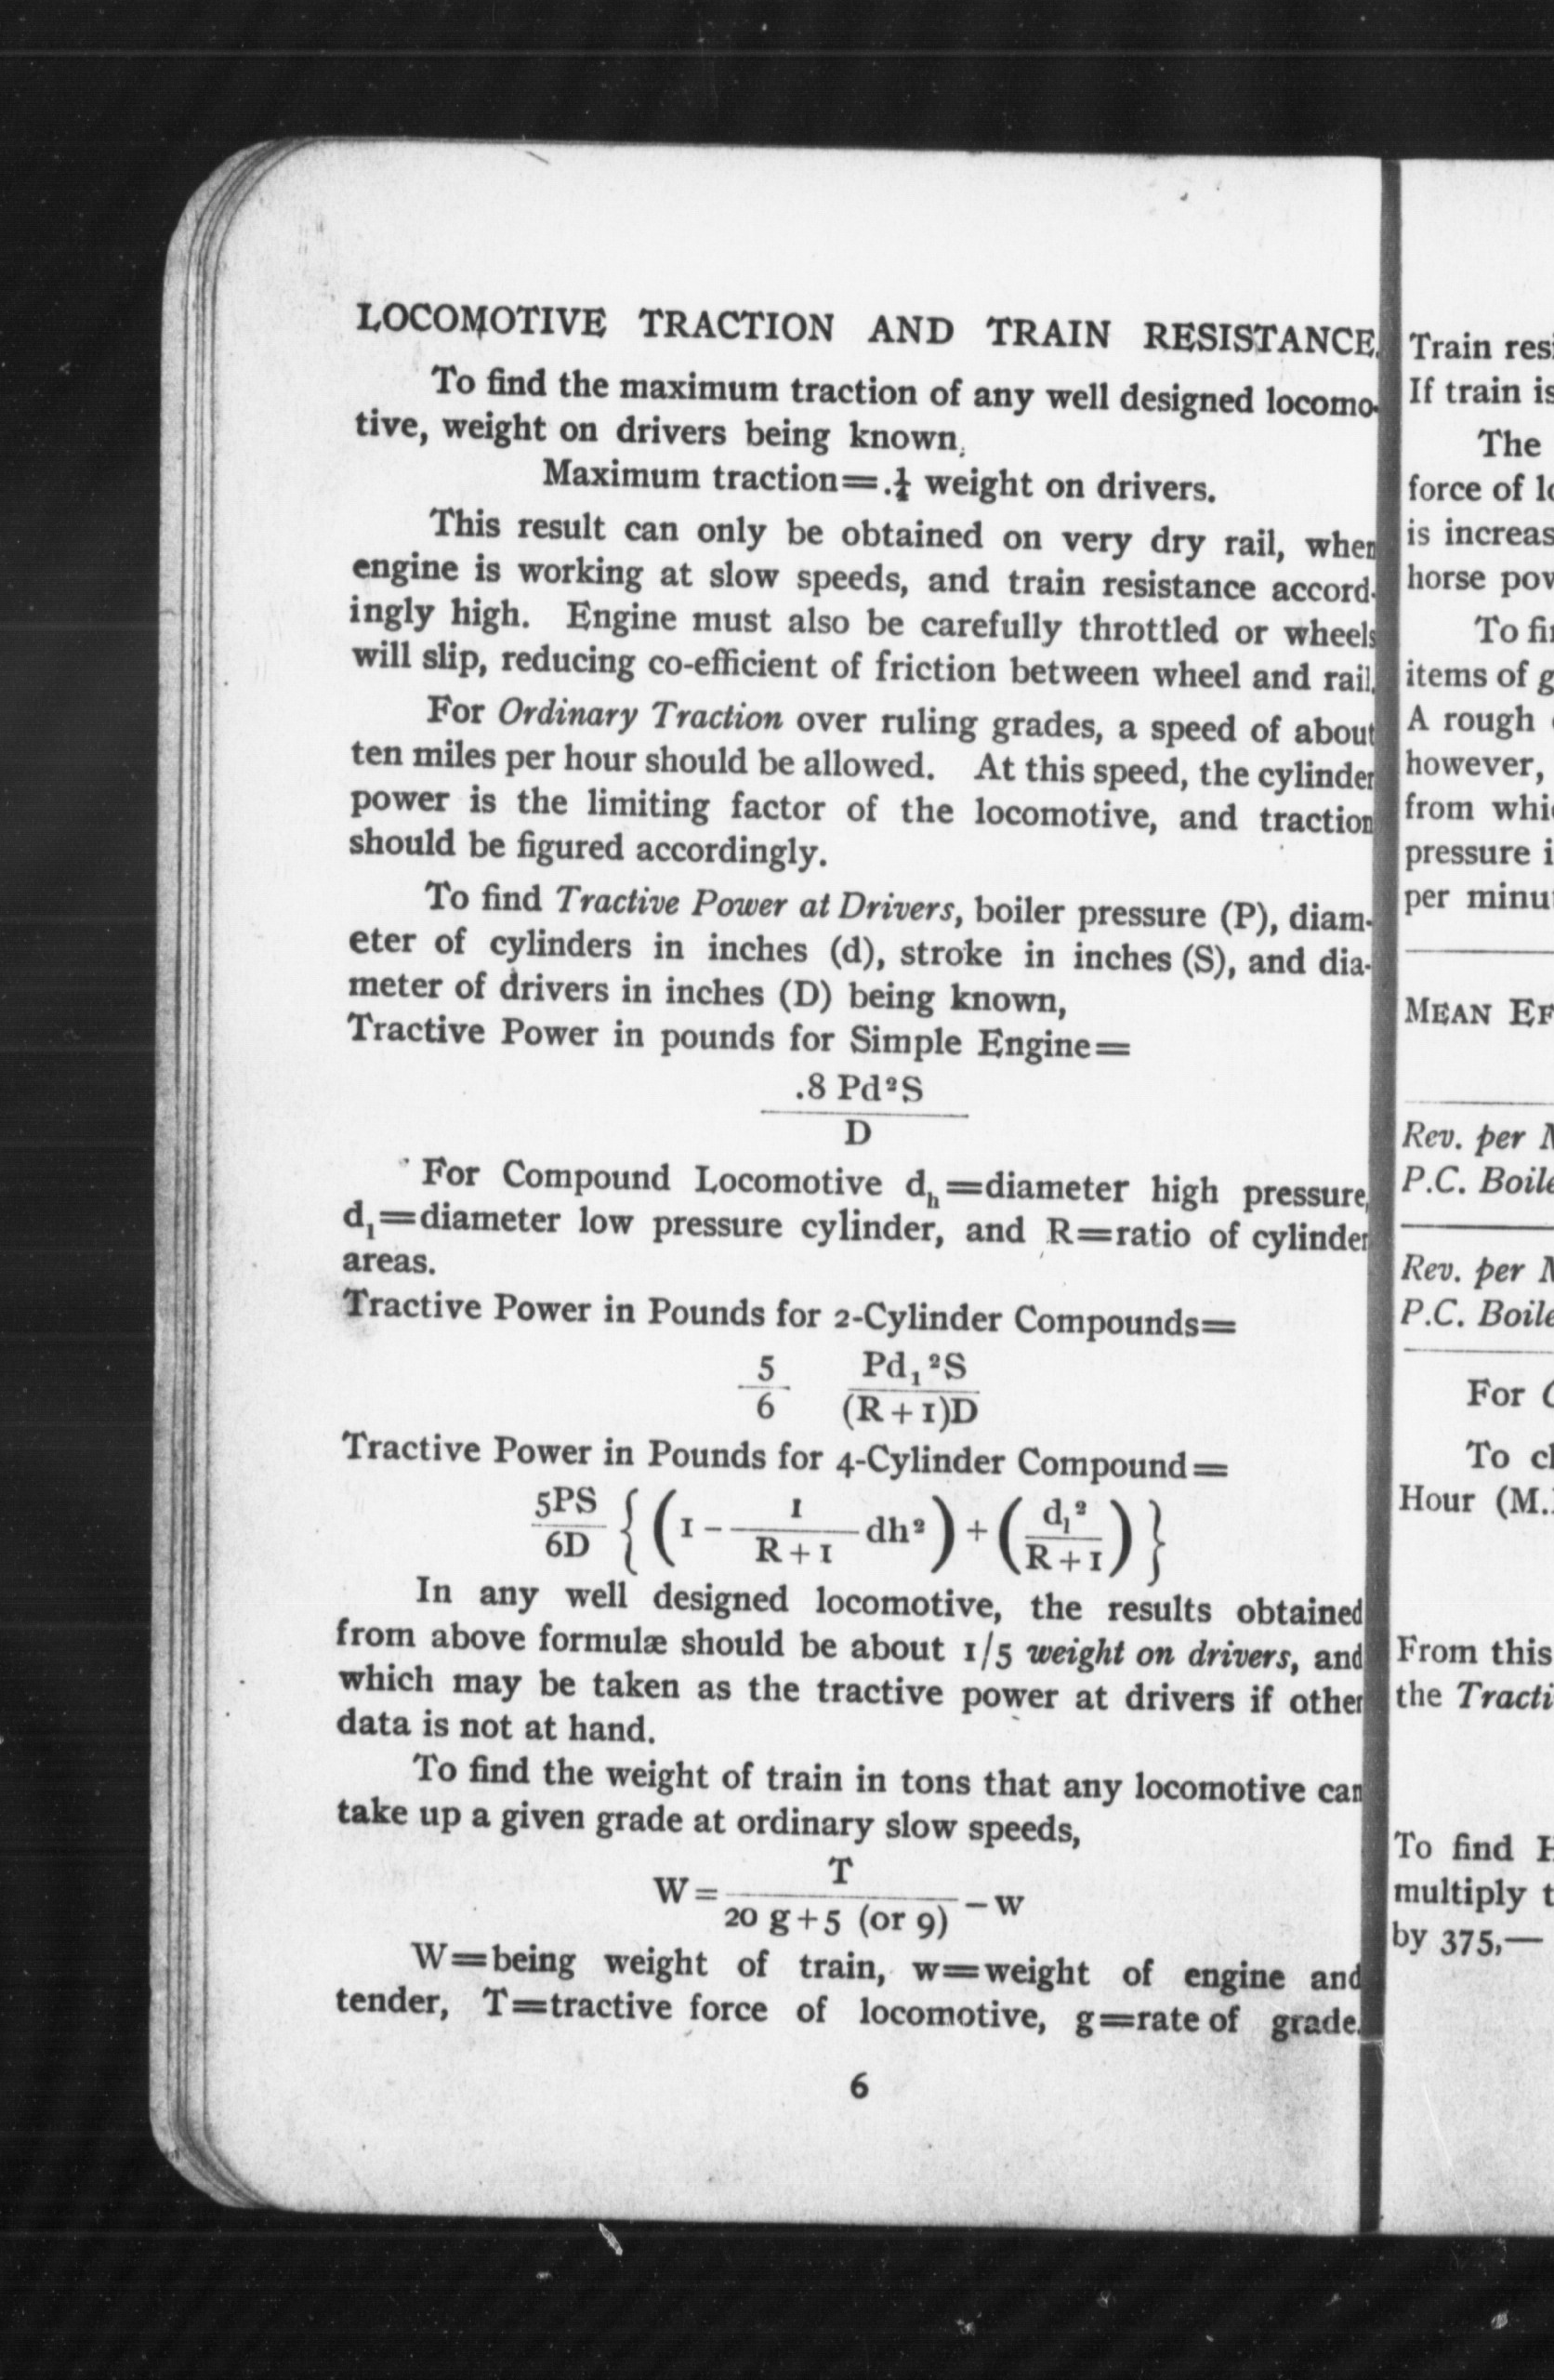 LOCOMOTIVE TRACTION AND TRAIN RESISTANCE.
To find the maximum traction of any well designed locomo-
tive, weight on drivers being known,
Maximum traction=.¼ weight on drivers.
This result can only be obtained on very dry rail, when
engine is working at slow speeds, and train resistance accord-
ingly high. Engine must also be carefully throttled or wheels
will slip, reducing co-efficient of friction between wheel and rail.
For Ordinary Traction over ruling grades, a speed of about
ten miles per hour should be allowed. At this speed, the cylinder
power is the limiting factor of the locomotive, and traction
should be figured accordingly.
To find Tractive Power at Drivers, boiler pressure (P), diam-
eter of cylinders in inches (d), stroke in inches (S), and dia-
meter of drivers in inches (D) being known,
Tractive Power in pounds for Simple Engine=
.8 Pd²S
D
For Compound Locomotive dₕ=diameter high pressure,
d₁=diameter low pressure cylinder, and R=ratio of cylinder
areas.
Tractive Power in Pounds for 2-Cylinder Compounds=
5 Pd₁²S
6 (R+1)D
Tractive Power in Pounds for 4-Cylinder Compound=
5PS/6D {(1 - 1/R+1 dh²) + (d₁²/R+1)}
In any well designed locomotive, the results obtained
from above formulæ should be about 1/5 weight on drivers, and
which may be taken as the tractive power at drivers if other
data is not at hand.
To find the weight of train in tons that any locomotive can
take up a given grade at ordinary slow speeds,
W = T / 20 g+5 (or 9) - w
W=being weight of train, w=weight of engine and
tender, T=tractive force of locomotive, g=rate of grade.
6
Train
If train is
The
force of
is
horse
To
items of
A rough
however,
from
pressure
per
MEAN
Rev. per
P.C.
Rev. per
P.C.
For
To
Hour
From this
the
To find
multiply
by 375,—